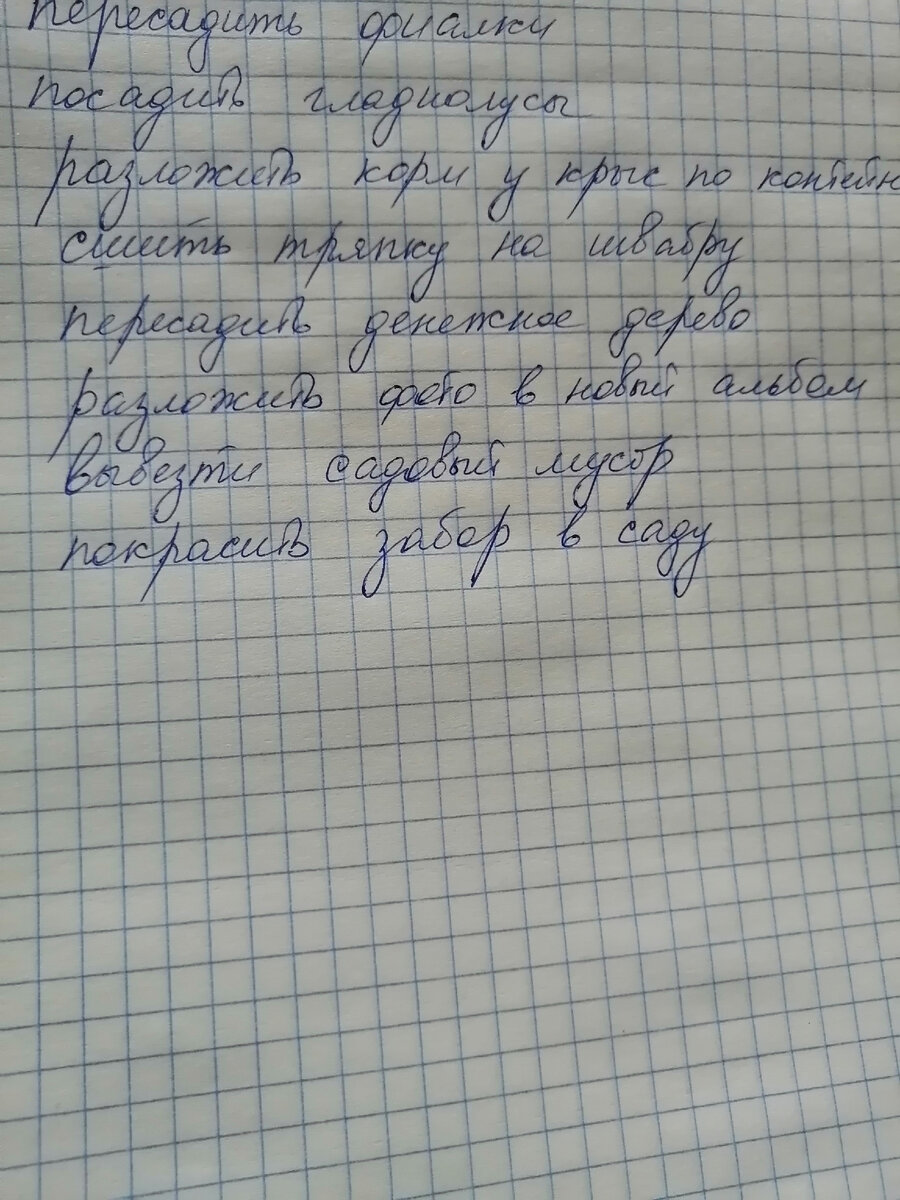 пересадить фиалки
посадить гладиолусы
разложить корм у крыс по контейн
сшить тряпку на швабру
пересадить денежное дерево
разложить фото в новый альбом
вывезти садовый мусор
покрасить забор в саду